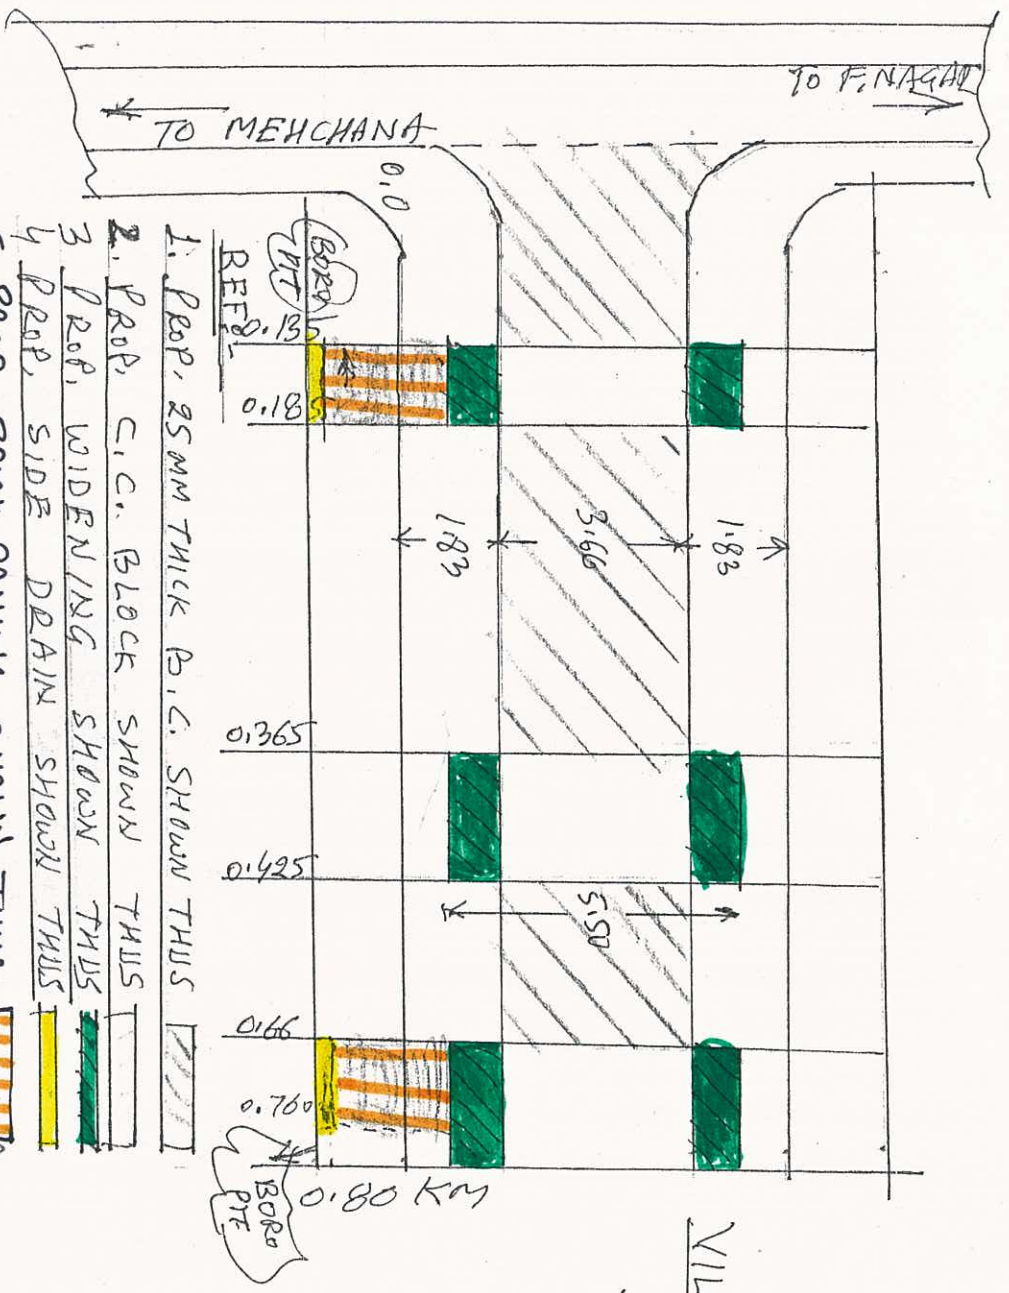 TO F. NAGAR
TO MEHCHANA
0.0
BORO
PIT
0.13
0.18
1.83
3.66
1.83
0.365
0.425
5.50
0.66
0.760
0.80 KM
BORO
PIT
VIL
REF:-
1. PROP. 25MM THICK B.C. SHOWN THUS
2. PROP. C.C. BLOCK SHOWN THUS
3 PROP. WIDENING SHOWN THUS
4 PROP. SIDE DRAIN SHOWN THUS